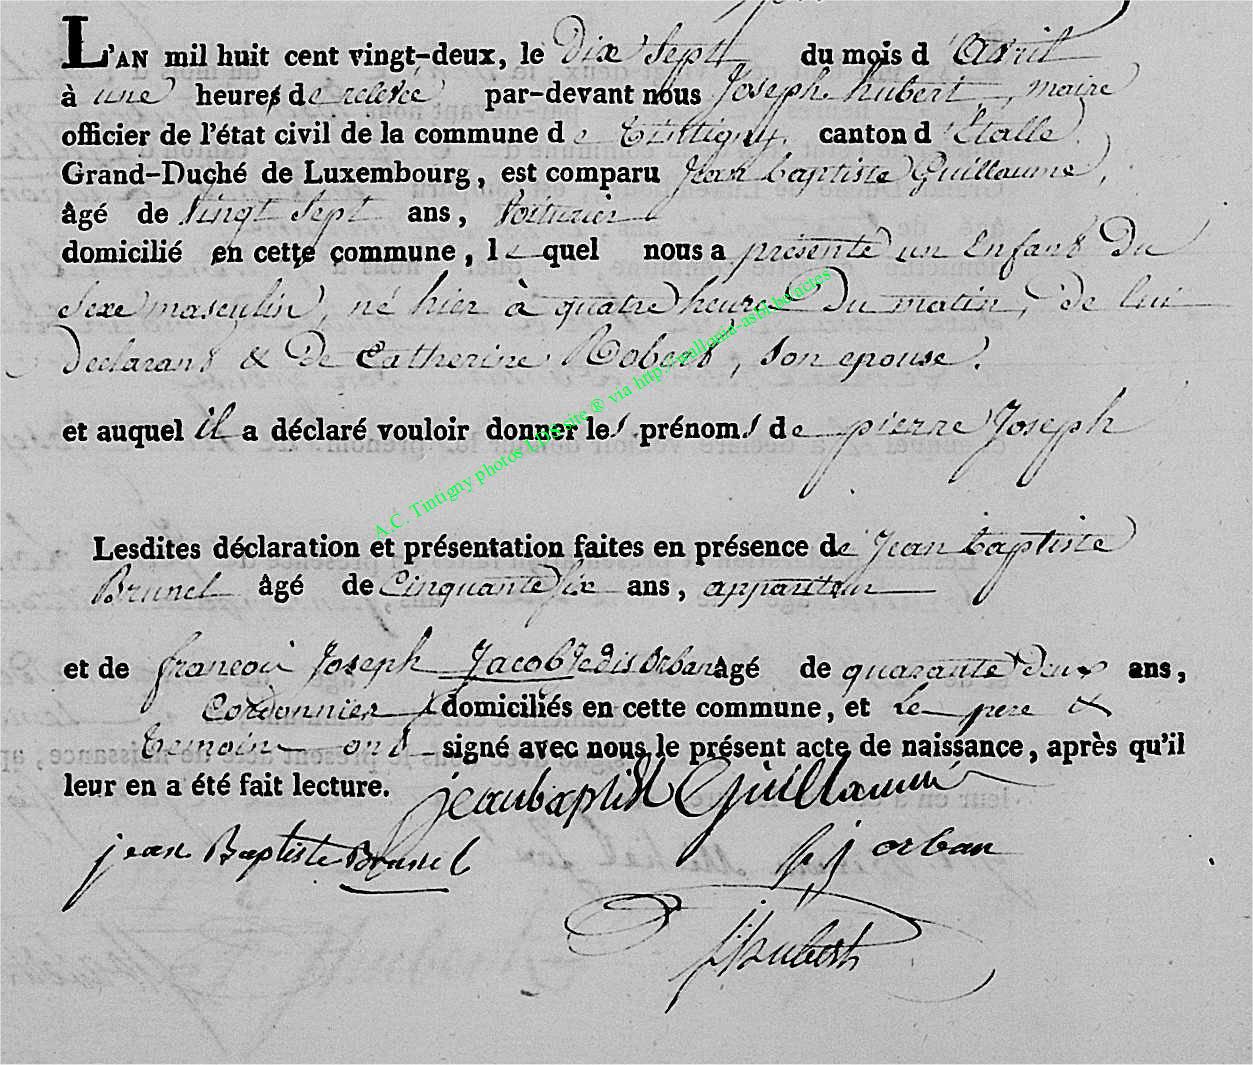 L'AN mil huit cent vingt-deux, le Dix Sept du mois d'Avril
à une heure de relevée par-devant nous Joseph hubert, maire
officier de l'état civil de la commune de Tintigny, canton d'Etalle
Grand-Duché de Luxembourg, est comparu Jean baptiste Guillaume,
âgé de Vingt Sept ans, Voiturier
domicilié en cette commune, lequel nous a présenté un Enfant Du
Sexe masculin, né hier à quatre heures Du matin, de lui
Declarant & De Catherine Robert, Son epouse.
et auquel il a déclaré vouloir donner les prénoms de pierre Joseph
A.C. Tintigny photos LDS site ® via http://wallonia-asbl.be/actes
Lesdites déclaration et présentation faites en présence de Jean baptiste
Brunel âgé de Cinquante six ans, appariteur
et de françois Joseph Jacob dis Orban âgé de quarante deux ans,
Cordonnier domiciliés en cette commune, et Le pere &
temoins ont signé avec nous le présent acte de naissance, après qu'il
leur en a été fait lecture.
jean baptist Guillaume
jean Baptiste Brunel
f j orban
J hubert